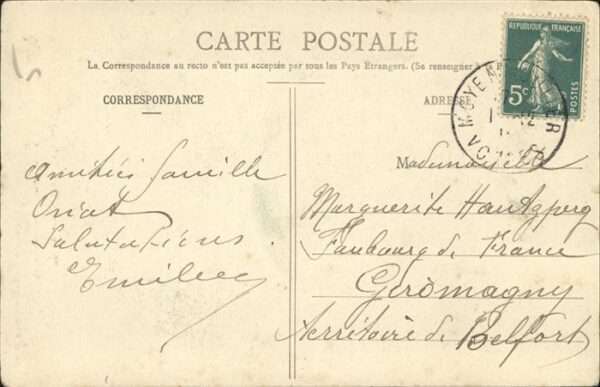 CARTE POSTALE
La Correspondance au recto n'est pas acceptée par tous les Pays Etrangers. (Se renseigner à
CORRESPONDANCE
ADRESSE
RÉPUBLIQUE FRANÇAISE
5c
POSTES
MOYE
Amitiés famille
Oriat
Salutations.
Emilie
Mademoiselle
Marguerite
Faubourg de France
Giromagny
Territoire de Belfort